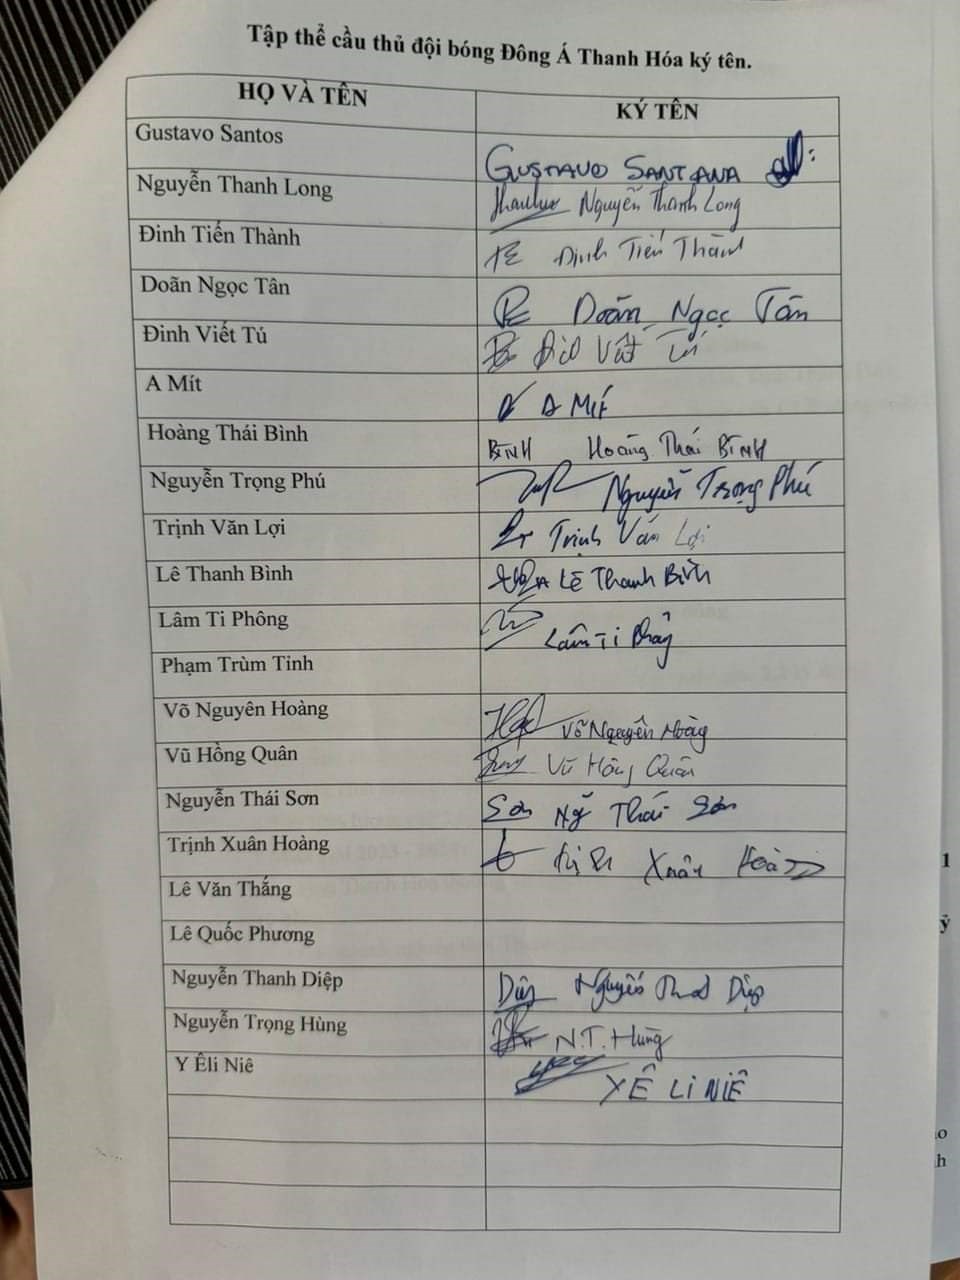 Tập thể cầu thủ đội bóng Đông Á Thanh Hóa ký tên.
HỌ VÀ TÊN KÝ TÊN
Gustavo Santos GUSTAVO SANTANA
Nguyễn Thanh Long Nguyễn Thanh Long
Đinh Tiến Thành Đinh Tiến Thành
Doãn Ngọc Tân Doãn Ngọc Tân
Đinh Viết Tú Tú
A Mít A MÍT
Hoàng Thái Bình BÌNH Hoàng Thái BÌNH
Nguyễn Trọng Phú Nguyễn Trọng Phú
Trịnh Văn Lợi Trịnh Văn Lợi
Lê Thanh Bình Lê Thanh Bình
Lâm Ti Phông Lâm Ti Phông
Phạm Trùm Tỉnh
Võ Nguyên Hoàng Võ Nguyên Hoàng
Vũ Hồng Quân Vũ Hồng Quân
Nguyễn Thái Sơn Sơn Ng̃ Thái Sơn
Trịnh Xuân Hoàng Xuân Hoàng
Lê Văn Thắng
Lê Quốc Phương
Nguyễn Thanh Diệp Diệp Nguyễn Diệp
Nguyễn Trọng Hùng N.T. Hùng
Y Êli Niê Y Ê LI NIÊ